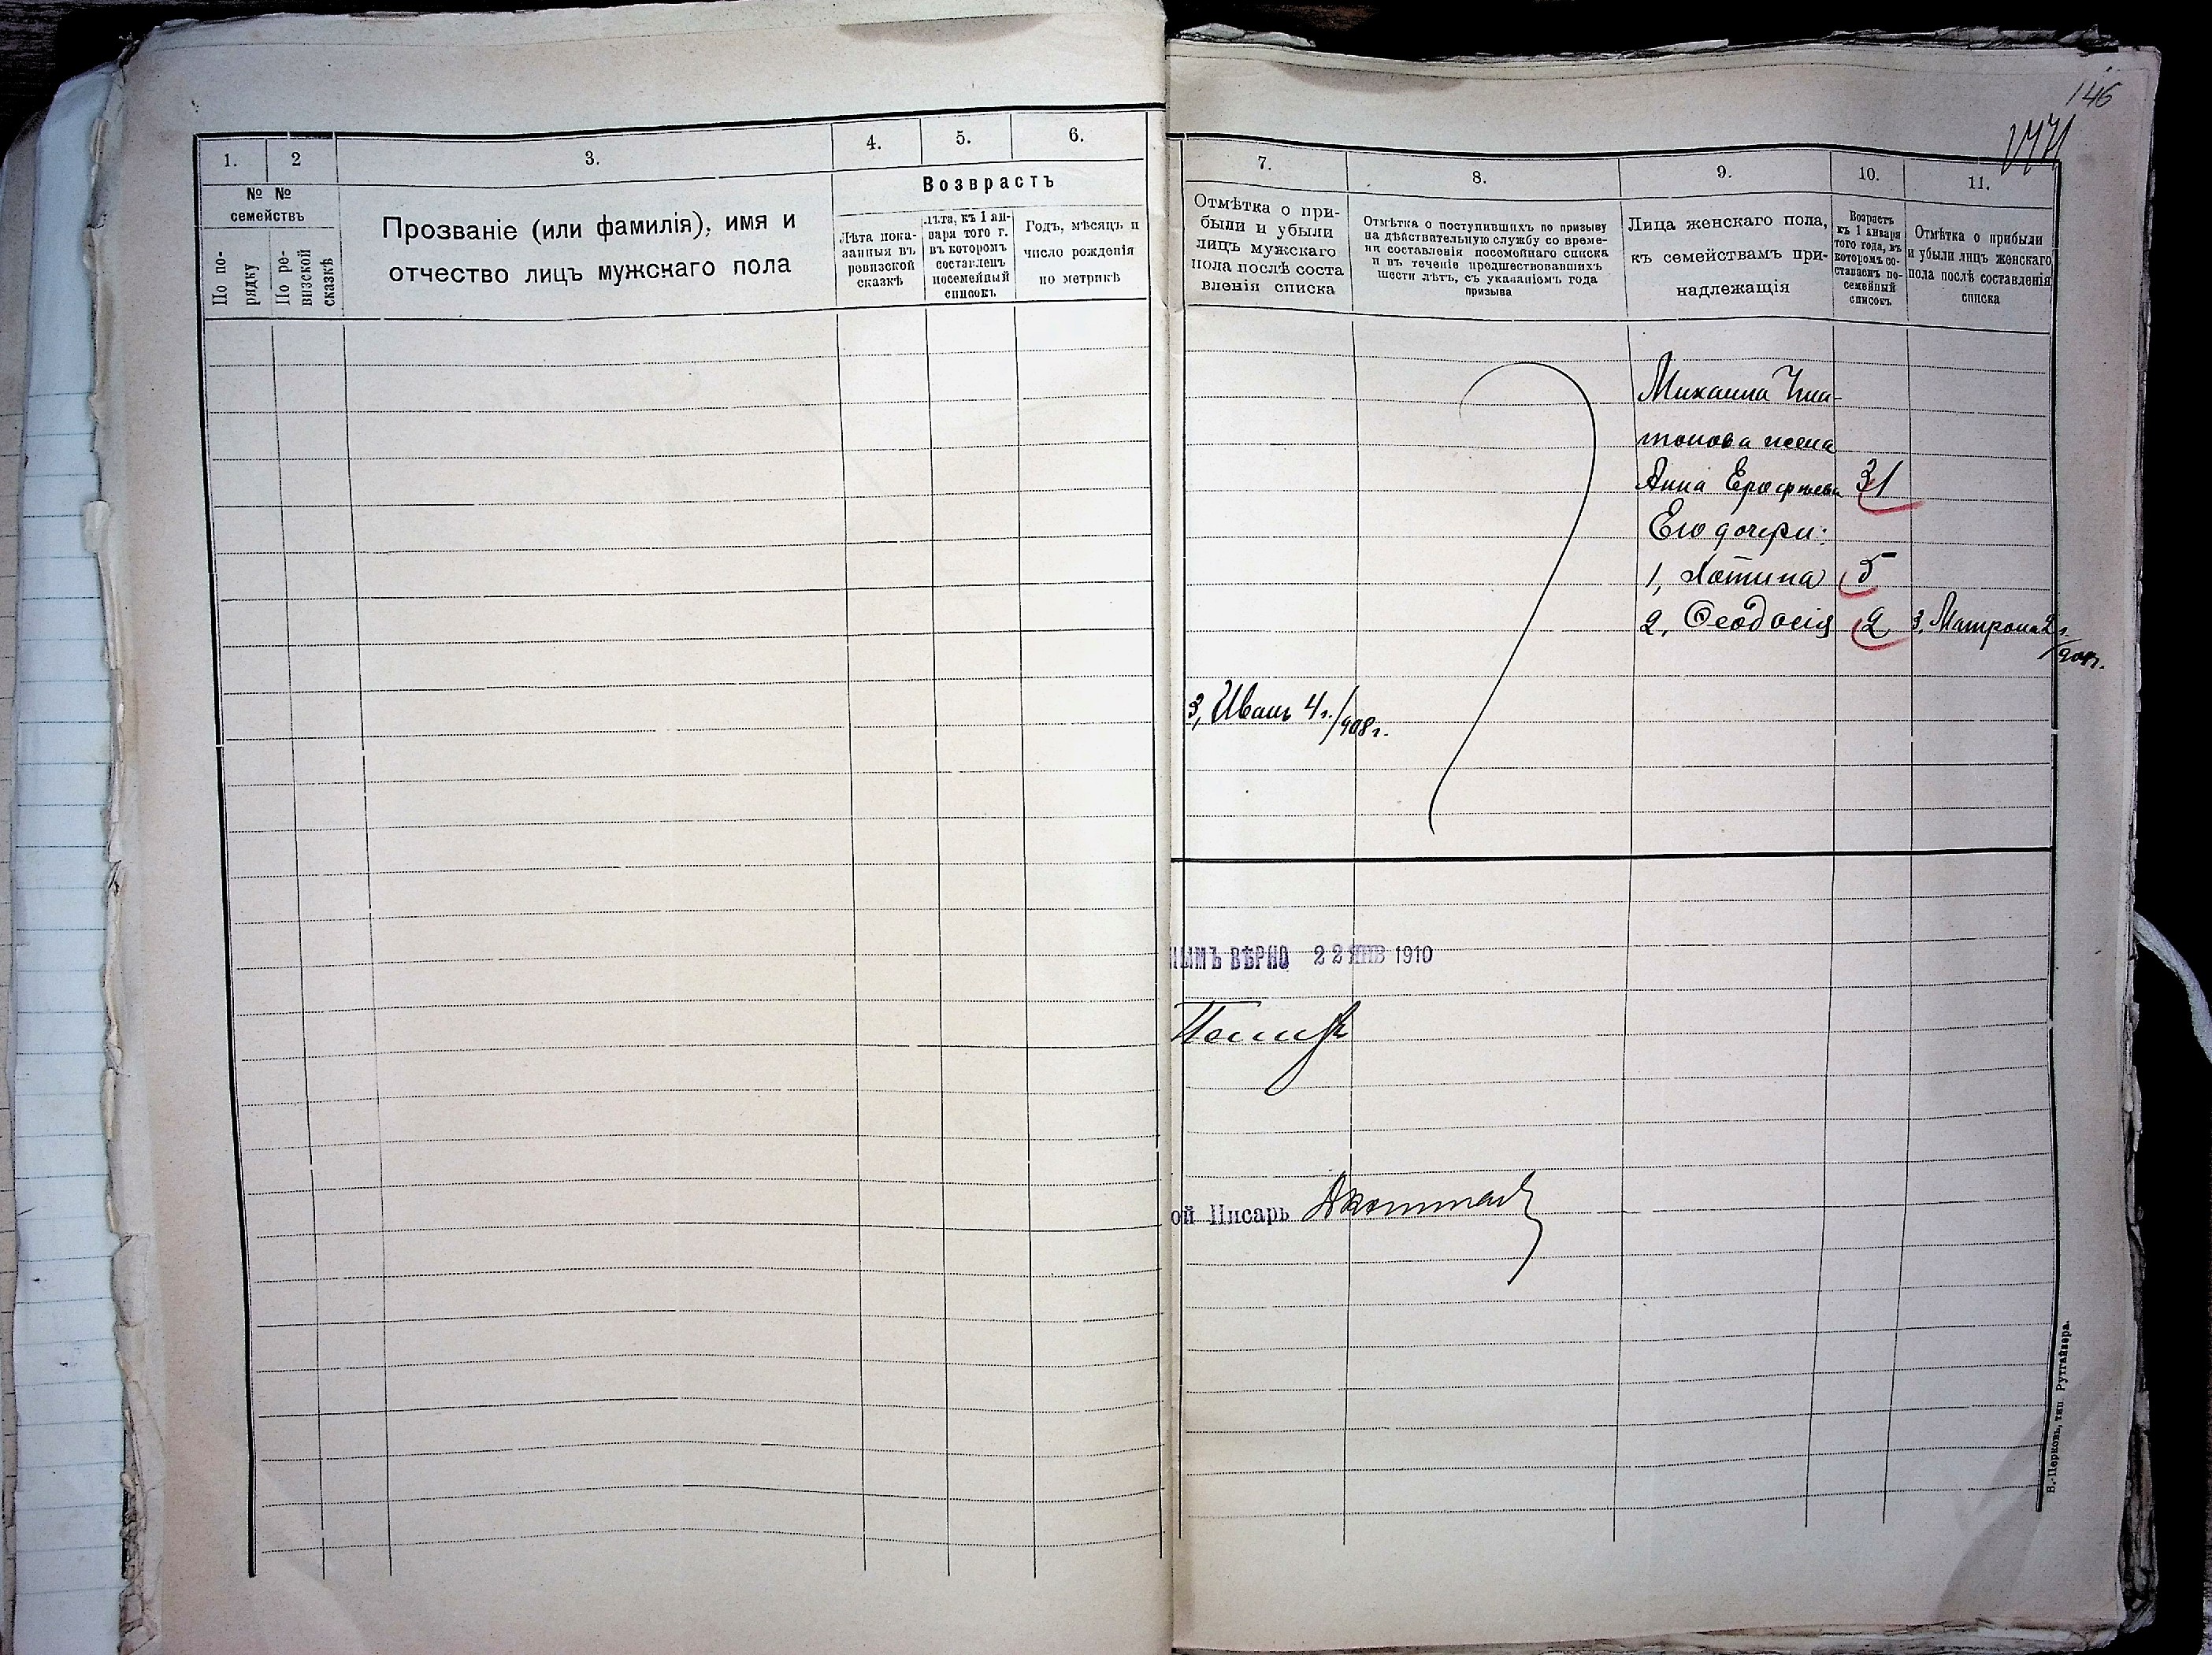 146
1.
2
3.
4.
5.
6.
№ №
семействъ
По по-
рядку
По ре-
визской
сказкѣ
Прозваніе (или фамилія), имя и
отчество лицъ мужскаго пола
Возврастъ
Лѣта пока-
занныя въ
ревизской
сказкѣ
Лѣта, къ 1 ян-
варя того г.
въ которомъ
составленъ
посемейный
списокъ
Годъ, мѣсяцъ и
число рожденія
по метрикѣ
7.
8.
9.
10.
11.
Отмѣтка о при-
были и убыли
лицъ мужскаго
пола послѣ соста
вленія списка
Отмѣтка о поступившихъ по призыву
на дѣйствительную службу со време-
ни составленія посемейнаго списка
и въ теченіе предшествовавшихъ
шести лѣтъ, съ указаніемъ года
призыва
Лица женскаго пола,
къ семействамъ при-
надлежащія
Возрастъ
къ 1 января
того года, въ
которомъ со-
ставленъ по-
семейный
списокъ
Отмѣтка о прибыли
и убыли лицъ женскаго
пола послѣ составленія
списка
Михаила
жена
Анна Ерофѣева 31
Его дочери:
1, 5
2, Ѳеодосія 2 3, Матрона 2 г.
3, Иванъ 4 г./908 г.
НЫМЪ ВѢРНО 22 ЯНВ 1910
ой Писарь
Б.-Церковь, тип. Рутгайзера.